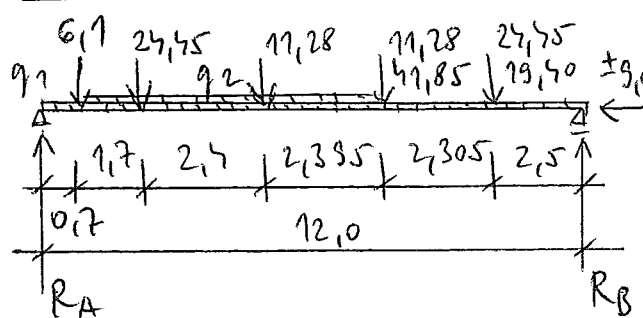 6,1 24,45 11,28 11,28 24,45
41,85 19,40 ±9,
q1 q2
1,7 2,4 2,395 2,305 2,5
0,7 12,0
RA RB